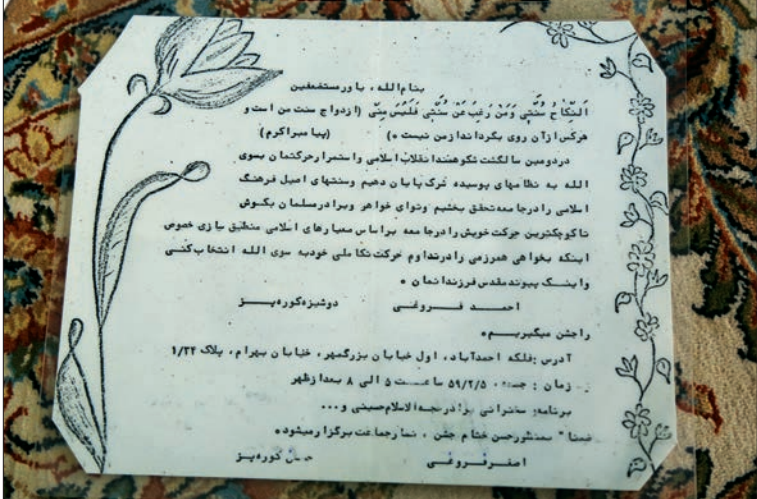 بنام الله، یاور مستضعفین
اَلنِّکاحُ سُنَّتی وَمَن رَغِبَ عَنْ سُنَّتی فَلَیْسَ مِنّی (ازدواج سنت من است و
هرکس از آن روی بگرداند از من نیست •) (پیامبر اکرم)
در دومین سالگشت شکوهمند انقلاب اسلامی و استمرار حرکتمان بسوی
الله به نظامهای پوسیده شرک پایان دهیم وسنتهای اصیل فرهنگ
اسلامی را درجامعه تحقق بخشیم وتوای خواهر وبرادر مسلمان بکوش
تا کوچکترین حرکت خویش را درجامعه براساس معیارهای اسلامی منطبق سازی خصوص
اینکه بخواهی همرزمی را در تداوم حرکت تکاملی خود به سوی الله انتخاب کنی
و اینک پیوند مقدس فرزندانمان •
احمد فروغی دوشیزه کوره‌پز
را جشن میگیریم•
آدرس: فلکه احمدآباد، اول خیابان بزرگمهر، خیابان بهرام، پلاک ۱/۲۴
زمان : جمعه ۵۹/۲/۵ ساعت ۵ الی ۸ بعدازظهر
برنامه سخنرانی برادر حجةالاسلام حسینی و...
ضمنا" بمنظور حسن ختام جشن ، نماز جماعت برگزار میشود•
اصغر فروغی کوره‌پز